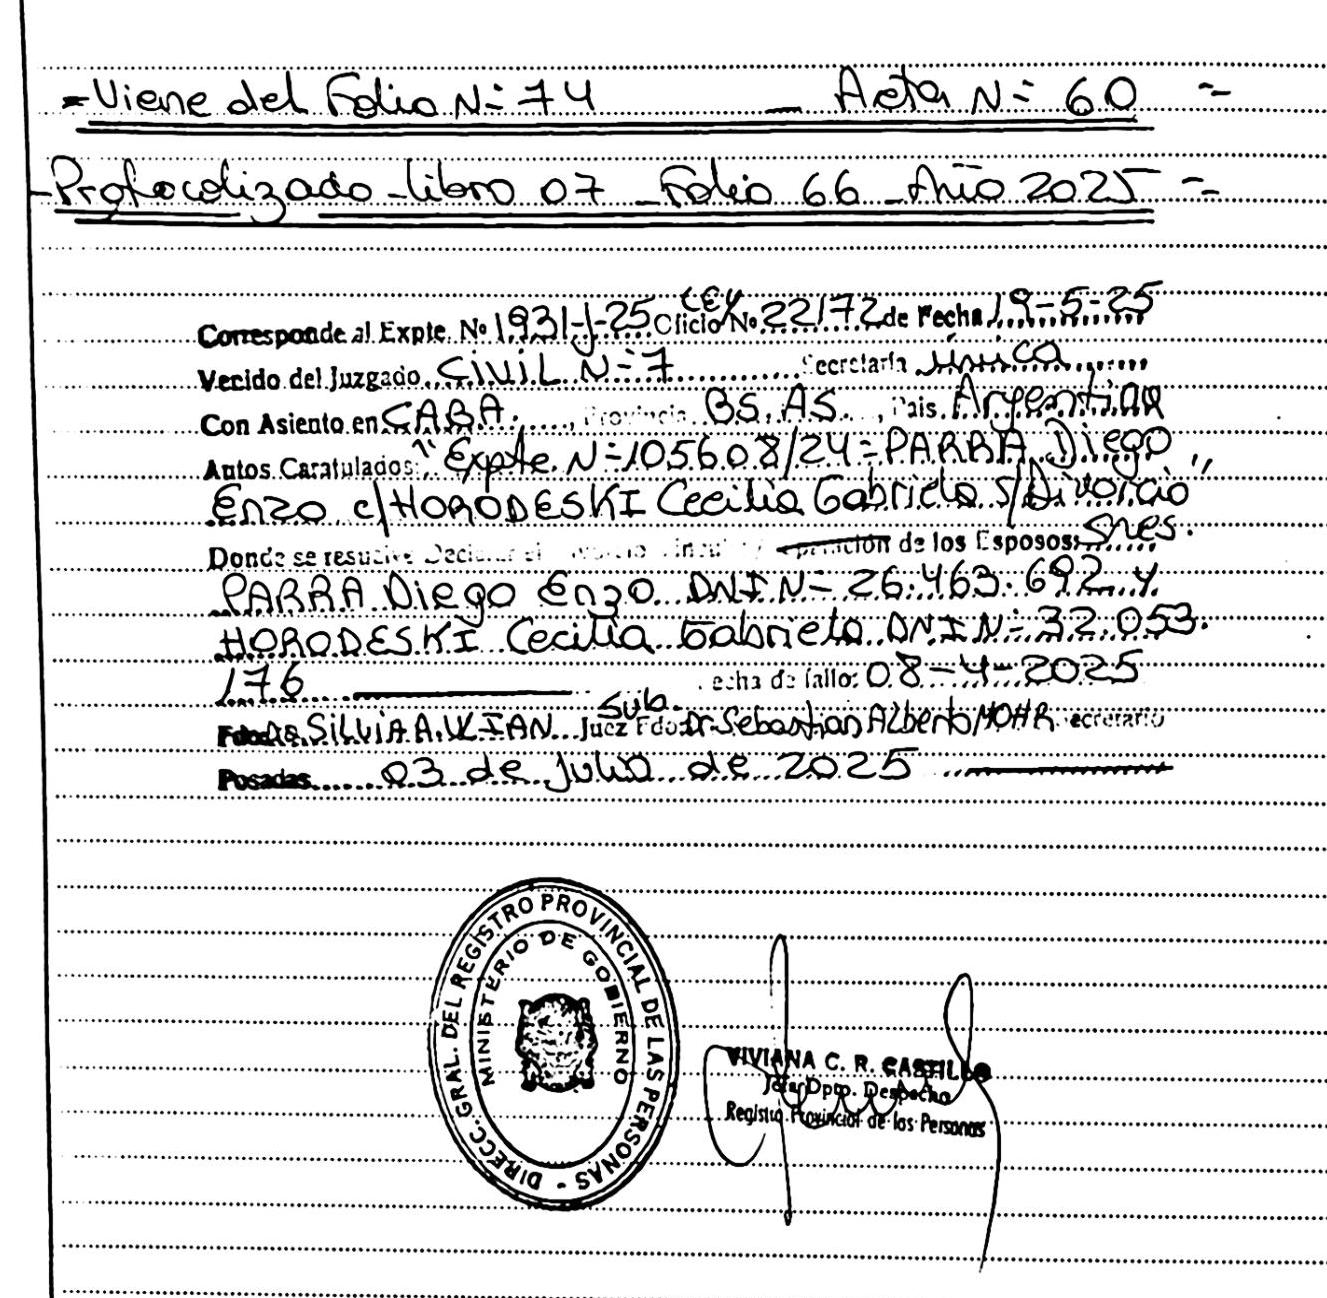 =Viene del Folio N= 74 _ Acta N= 60 =
-Protocolizado-libro 07 _Folio 66 _Año 2025 =
Corresponde al Expte. Nº 1931-J-25 Oficio/LEY Nº 22172 de Fecha 19-5-25
Venido del Juzgado CiViL N=7 Secretaría única
Con Asiento en CABA. , Provincia BS.AS. , Pais. Argentina
Autos Caratulados: "Expte. N=105608/24=PARRA Diego
Enzo c/HORODESKI Cecilia Gabriela s/Divorcio"
Donde se resuelve Declarar el de los Esposos: Sres.
PARRA Diego Enzo DNI N= 26.463.692 y
HORODESKI Cecilia Gabriela DNI N= 32.053.
176 Fecha de fallo: 08-4-2025
Fdo: Dra. SiLViA A. Juez Sub. Fdo: Dr. Sebastian Alberto MOHR Secretario
Posadas 03 de julio de 2025
DIRECC. GRAL. DEL REGISTRO PROVINCIAL DE LAS PERSONAS -
MINISTERIO DE GOBIERNO
VIVIANA C. R. CASTILLO
Jefa Dpto. Despacho
Registro Provincial de las Personas